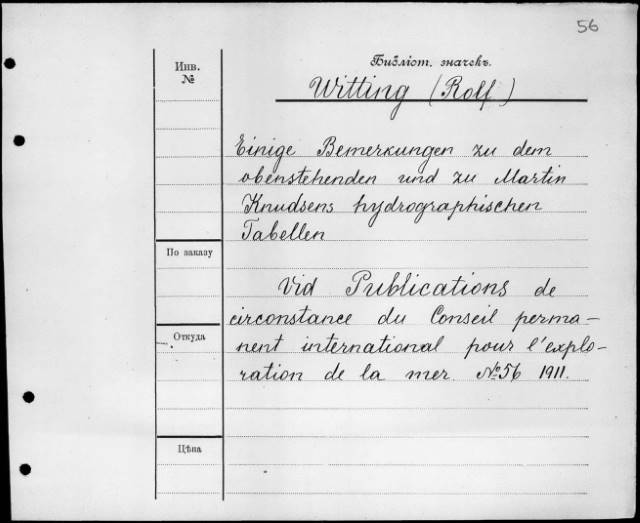 56
Инв.
№
Библіот. значекъ.
Witting (Rolf)
Einige Bemerkungen zu dem
obenstehenden und zu Martin
Knudsens hydrographischen
Tabellen
По заказу
Vid Publications de
circonstance du Conseil perma-
nent international pour l'explo-
ration de la mer. №56 1911.
Откуда
Цѣна